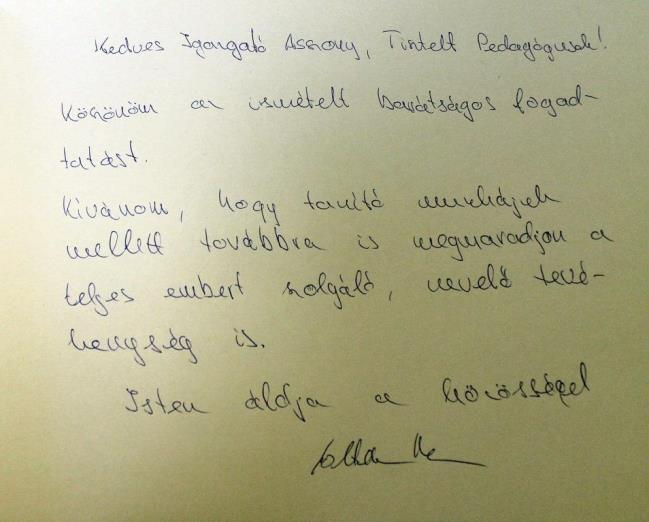 Kedves Igazgató Asszony, Tisztelt Pedagógusok!
Köszönöm az ismételt barátságos fogad-
tatást.
Kívánom, hogy tanító munkájuk
mellett továbbra is megmaradjon a
teljes embert szolgáló, nevelő tevé-
kenység is.
Isten áldja a közösséget